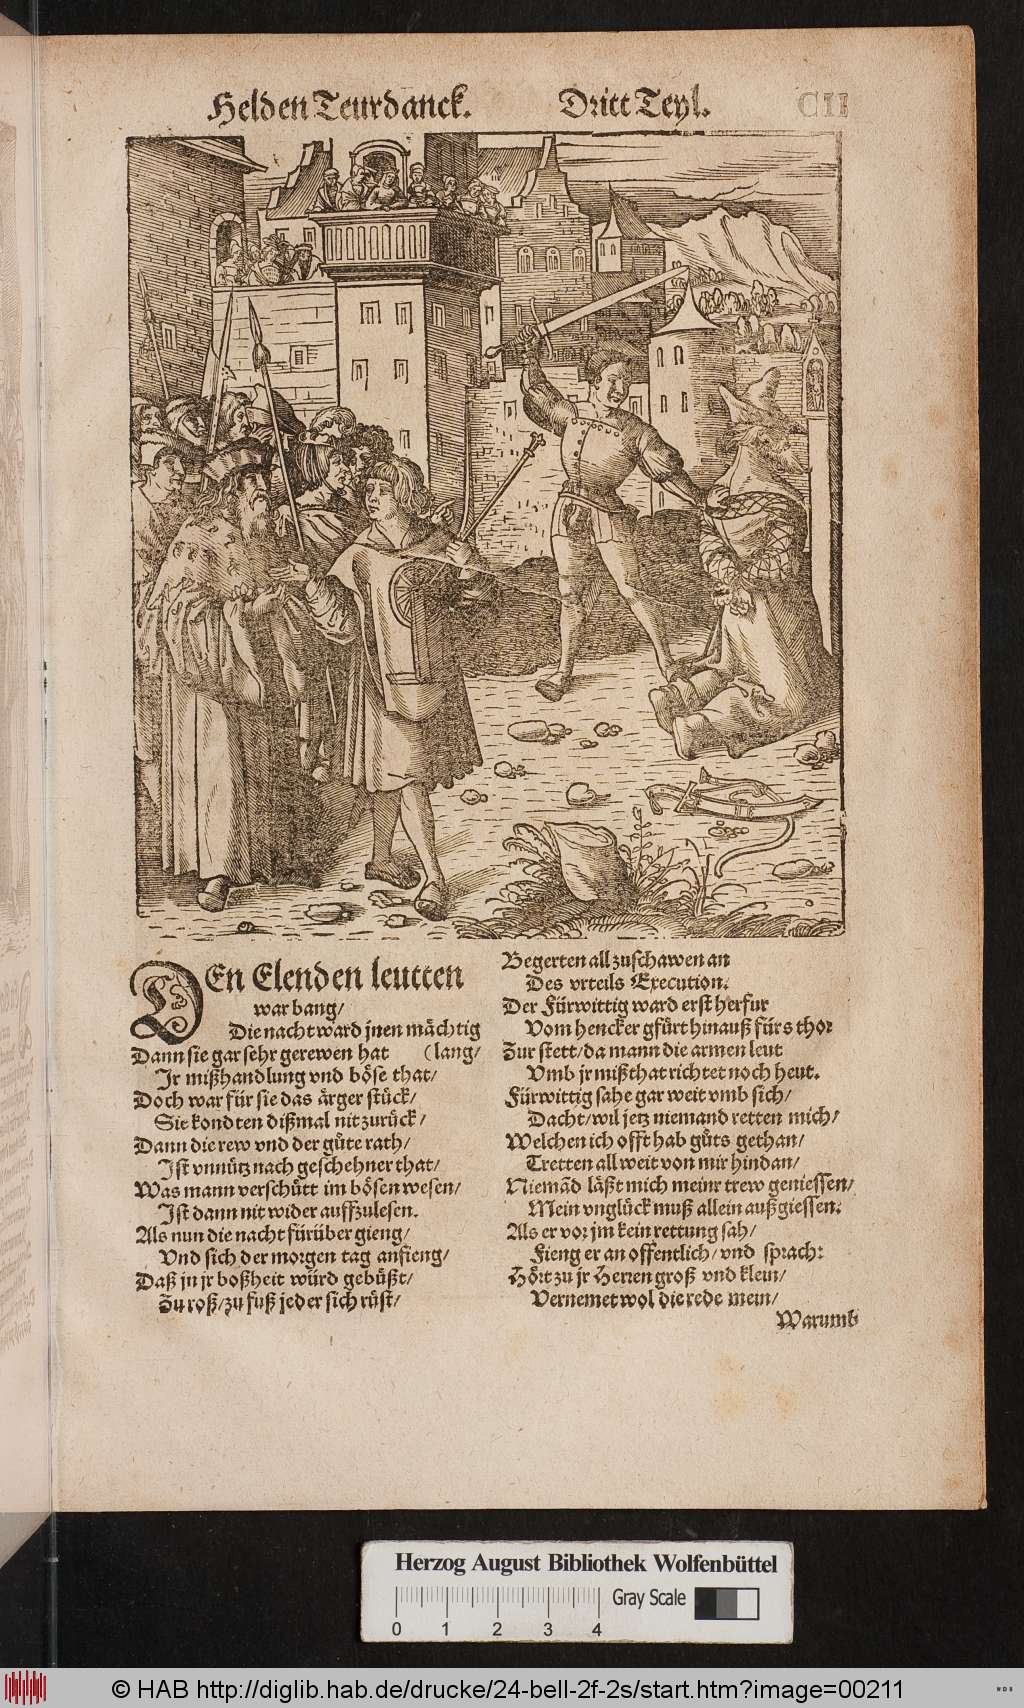 Helden Teurdanck. Dritt Teyl. CII
DEn Elenden leutten
war bang/
Die nacht ward jnen mächtig
Dann sie gar sehr gerewen hat (lang/
Jr mißhandlung vnd böse that/
Doch war für sie das ärger stück/
Sie kondten dißmal nit zurück/
Dann die rew vnd der güte rath/
Ist vnnütz nach geschehner that/
Was mann verschütt im bösen wesen/
Ist dann nit wider auffzulesen.
Als nun die nacht fürüber gieng/
Vnd sich der morgen tag anfieng/
Daß jn jr boßheit würd gebüßt/
Zu roß/zu fuß jeder sich rüst/
Begerten all zuschawen an
Des vrteils Execution.
Der Fürwittig ward erst herfur
Vom hencker gfürt hinauß fürs thor
Zur stett/da mann die armen leut
Vmb jr mißthat richtet noch heut.
Fürwittig sahe gar weit vmb sich/
Dacht/wil jetz niemand retten mich/
Welchen ich offt hab güts gethan/
Tretten all weit von mir hindan/
Niemād läßt mich meinr trew geniessen/
Mein vnglück muß allein außgiessen.
Als er vor jm kein rettung sah/
Fieng er an offentlich/vnd sprach:
Hört zu jr Herren groß vnd klein/
Vernemet wol die rede mein/
Warumb
Herzog August Bibliothek Wolfenbüttel
Gray Scale
0 1 2 3 4
© HAB http://diglib.hab.de/drucke/24-bell-2f-2s/start.htm?image=00211